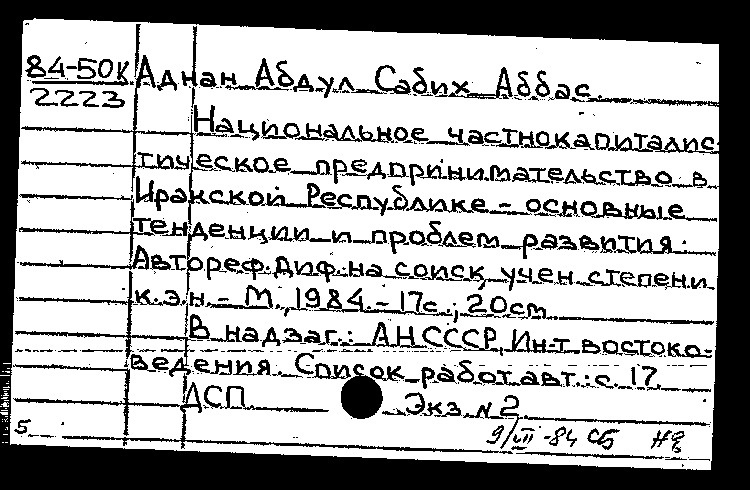 84-50К
2223
Аднан Абдул Сабих Аббас.
Национальное частнокапиталис-
тическое предпринимательство в
Иракской Республике - основные
тенденции и проблем развития:
Автореф. диф. на соиск. учен. степени
к.э.н. - М., 1984. - 17с.; 20см
В надзаг.: АН СССР, Ин-т востоко-
ведения. Список работ авт.: с. 17.
ДСП Экз. N 2
5 9/VII-84 СБ